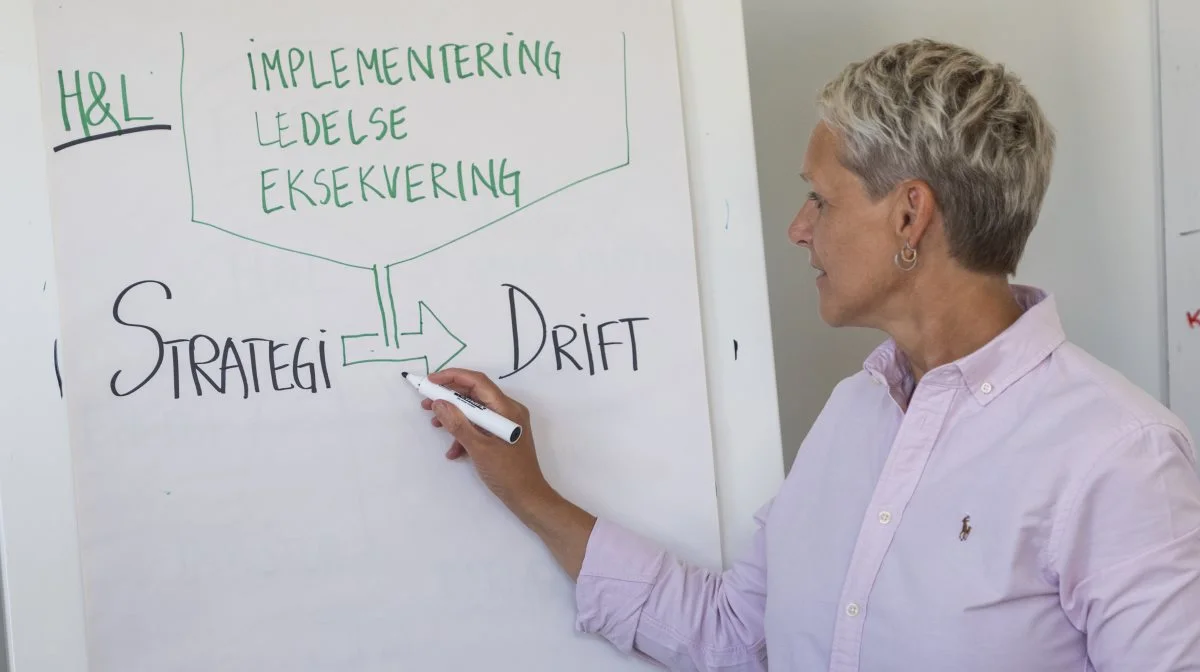 H&L
IMPLEMENTERING
LEDELSE
EKSEKVERING
STRATEGI
DRIFT